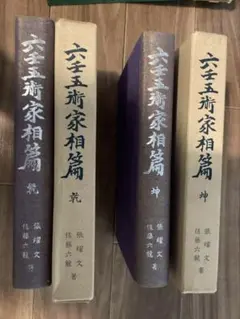 六壬五術家相篇 乾
張耀文
佐藤六龍 著
六壬五術家相篇 乾
張耀文
佐藤六龍 著
六壬五術家相篇 坤
張耀文
佐藤六龍 著
六壬五術家相篇 坤
張耀文
佐藤六龍 著